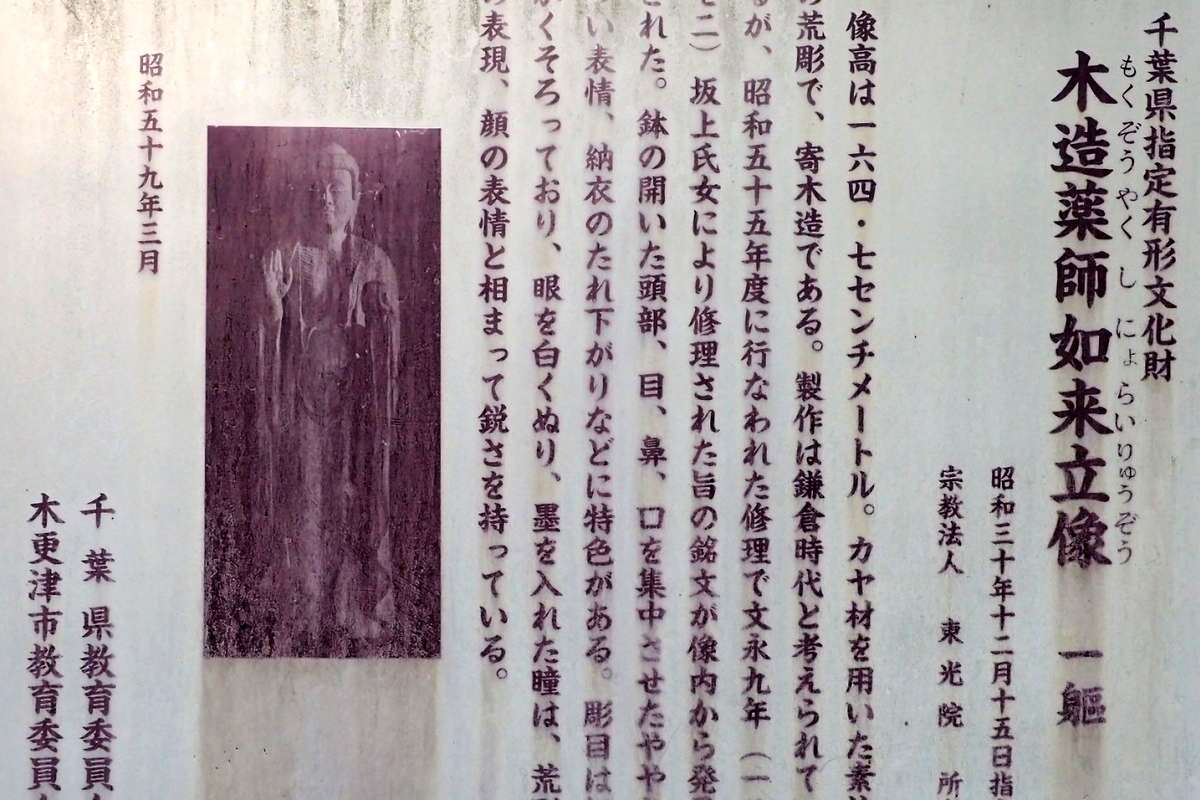 千葉県指定有形文化財
もくぞうやくしにょらいりゅうぞう
木造薬師如来立像 一軀
昭和三十年十二月十五日指
宗教法人 東光院 所
像高は一六四・七センチメートル。カヤ材を用いた素
の荒彫で、寄木造である。製作は鎌倉時代と考えられて
るが、昭和五十五年度に行なわれた修理で文永九年（一
七二）坂上氏女により修理された旨の銘文が像内から発
された。鉢の開いた頭部、目、鼻、口を集中させたやや
い表情、納衣のたれ下がりなどに特色がある。彫目は
くそろっており、眼を白くぬり、墨を入れた瞳は、荒
の表現、顔の表情と相まって鋭さを持っている。
昭和五十九年三月
千葉県教育委員
木更津市教育委員